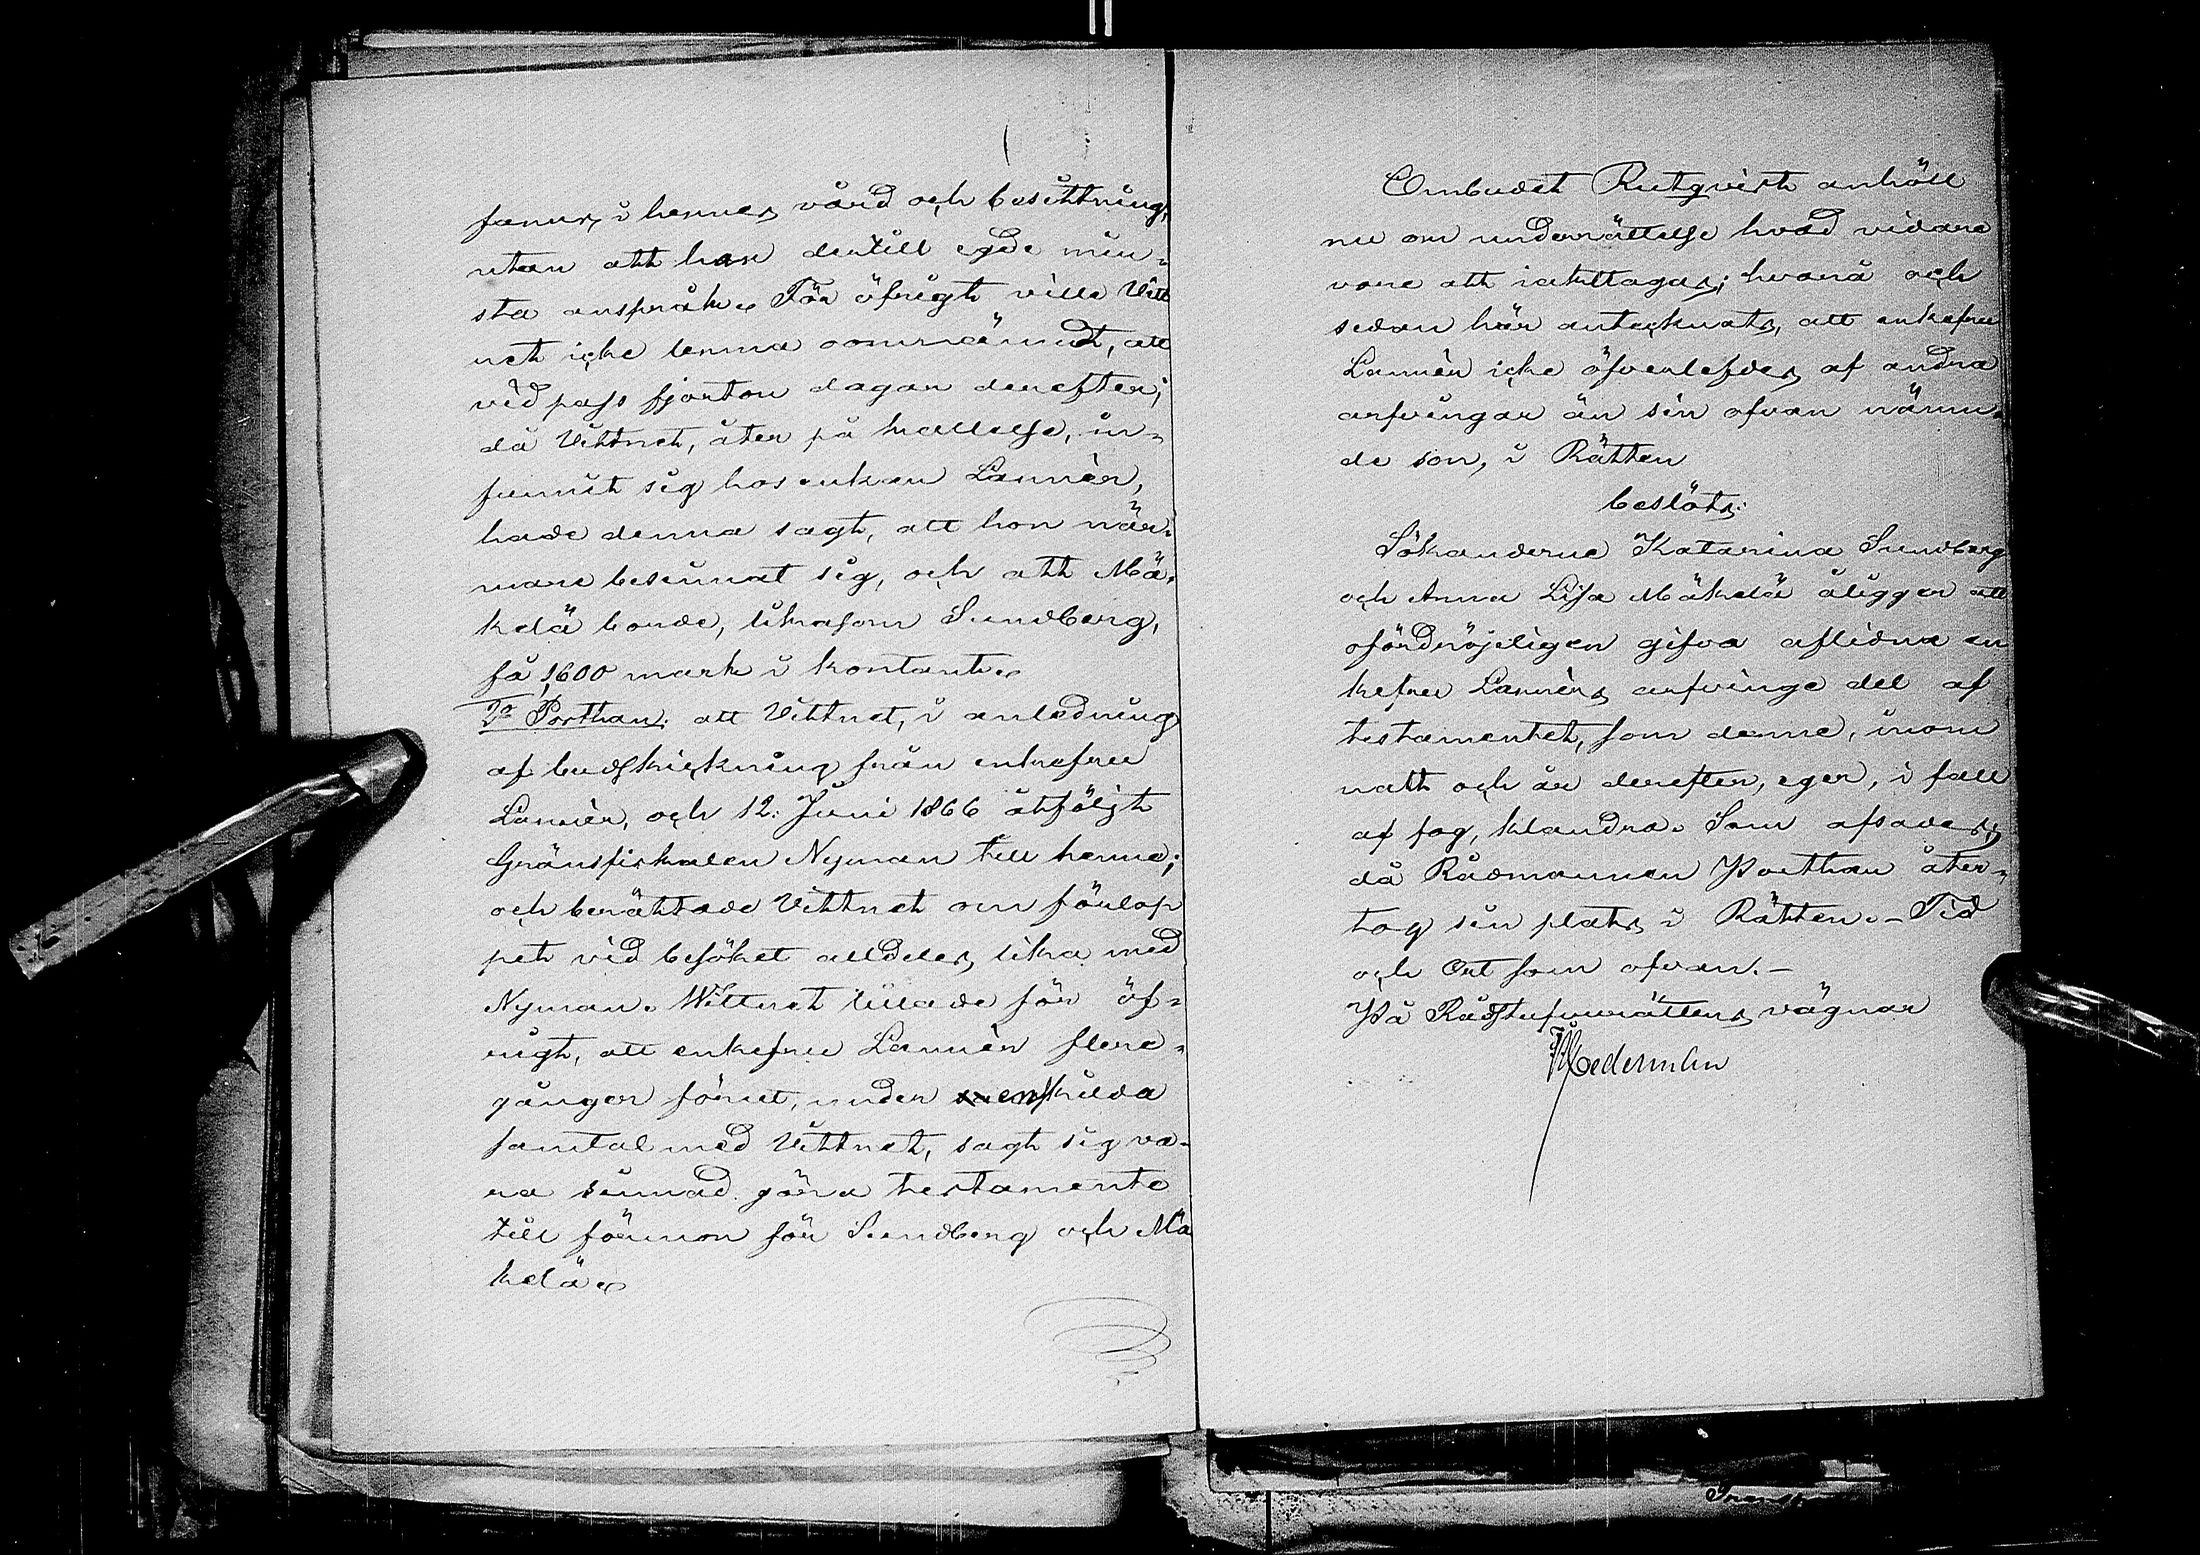 fanns, i hennes vård och besittning,
utan att han dertill egde min-
sta anspråk. För öfrigt ville Vitt
net icke lemna oomnämndt, att
vid pass fjorton dagar derefter,
då Vittnet, åter på kallelse, in-
funnit sig hos enkan Lannér,
hade denna sagt, att hon när-
mare besinnat sig, och att Mä-
kelä borde, likasom Sundberg,
få 1,600 mark i kontant.
Porthan: att Vittnet, i anledning
af budskickning från enkefru
Lannér, och 12. Juni 1866 åtföljt
Gränsfiskalen Nyman till henne;
och berättade Vittnet om förlop
pet vid besöket alldeles lika med
Nyman. Wittnet tillade för öf-
rigt, att enkefru Lannér flere-
gånger förut, under enskilda
samtal med Vittnet, sagt sig va-
ra sinnad göra testamente
till förmon för Sundberg och Mä
kelä.
Ombudet Rutqvist anhöll
nu om underrättelse hvad vidare
vore att iakttagas; hvarå och
sedan här antecknats, att enkefru
Lannér icke öfverlefdes af andra
arfvingar än sin ofvan nämn-
de son, i Rätten
beslöts:
Sökanderne Katarina Sundberg
och Anna Lisa Mäkelä åligger att
ofördröjeligen gifva aflidna en
kefru Lannérs arfvinge del af
testamentet, som denne, inom
natt och år derefter, eger, i fall
af fog, klandra. Som afsades;
då Rådmannen Porthan åter-
tog sin plats i Rätten. - Tid
och Ort som ofvan. -
På Rådstufvurättens vägnar